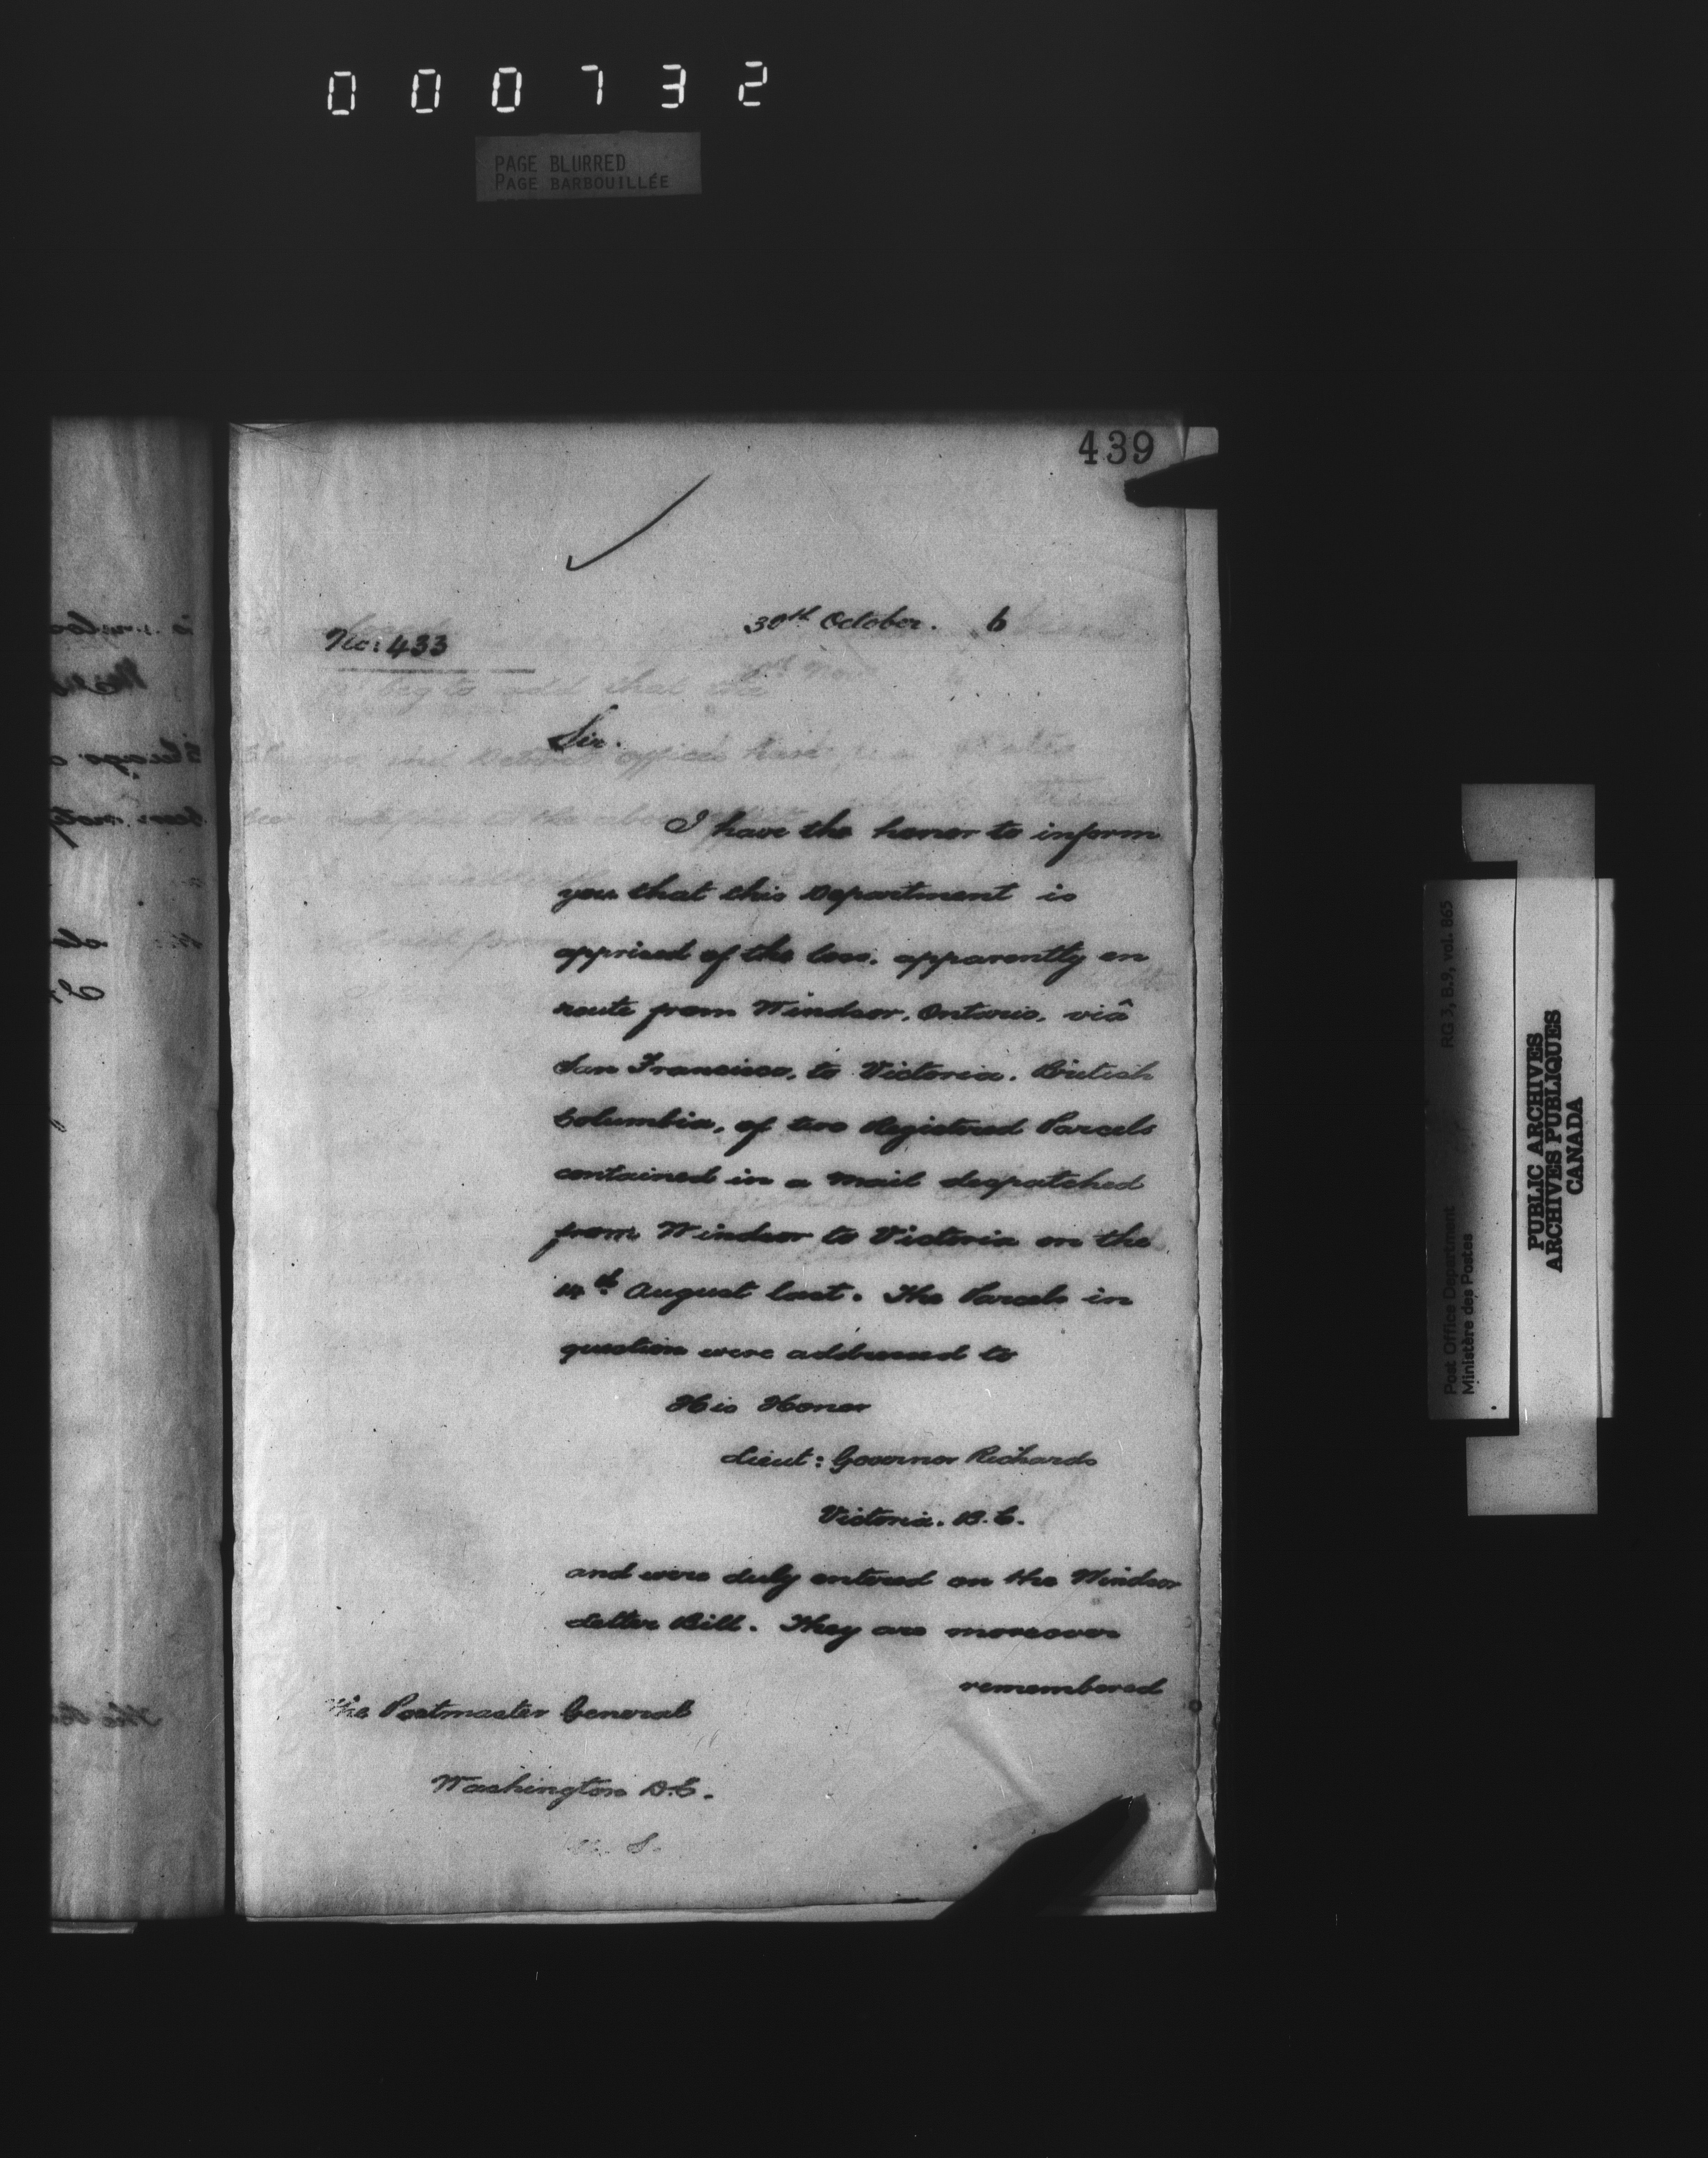 000732
PAGE BLURRED
PAGE BARBOUILLÉE
439
30th October. 6
No: 433
Sir.
I have the honor to inform
you that this Department is
apprised of the loss, apparently en
route from Windsor, Ontario, viâ
San Francisco, to Victoria. British
Columbia, of two Registered Parcels
contained in a Mail despatched
from Windsor to Victoria on the
14th August last. The Parcels in
question were addressed to
His Honor
Lieut: Governor Richards
Victoria. B.C.
and were duly entered on the Windsor
Letter Bill. They are moreover
remembered
The Postmaster General
Washington D.C.
RG 3, B.9, vol. 865
Post Office Department
Ministère des Postes
PUBLIC ARCHIVES
ARCHIVES PUBLIQUES
CANADA